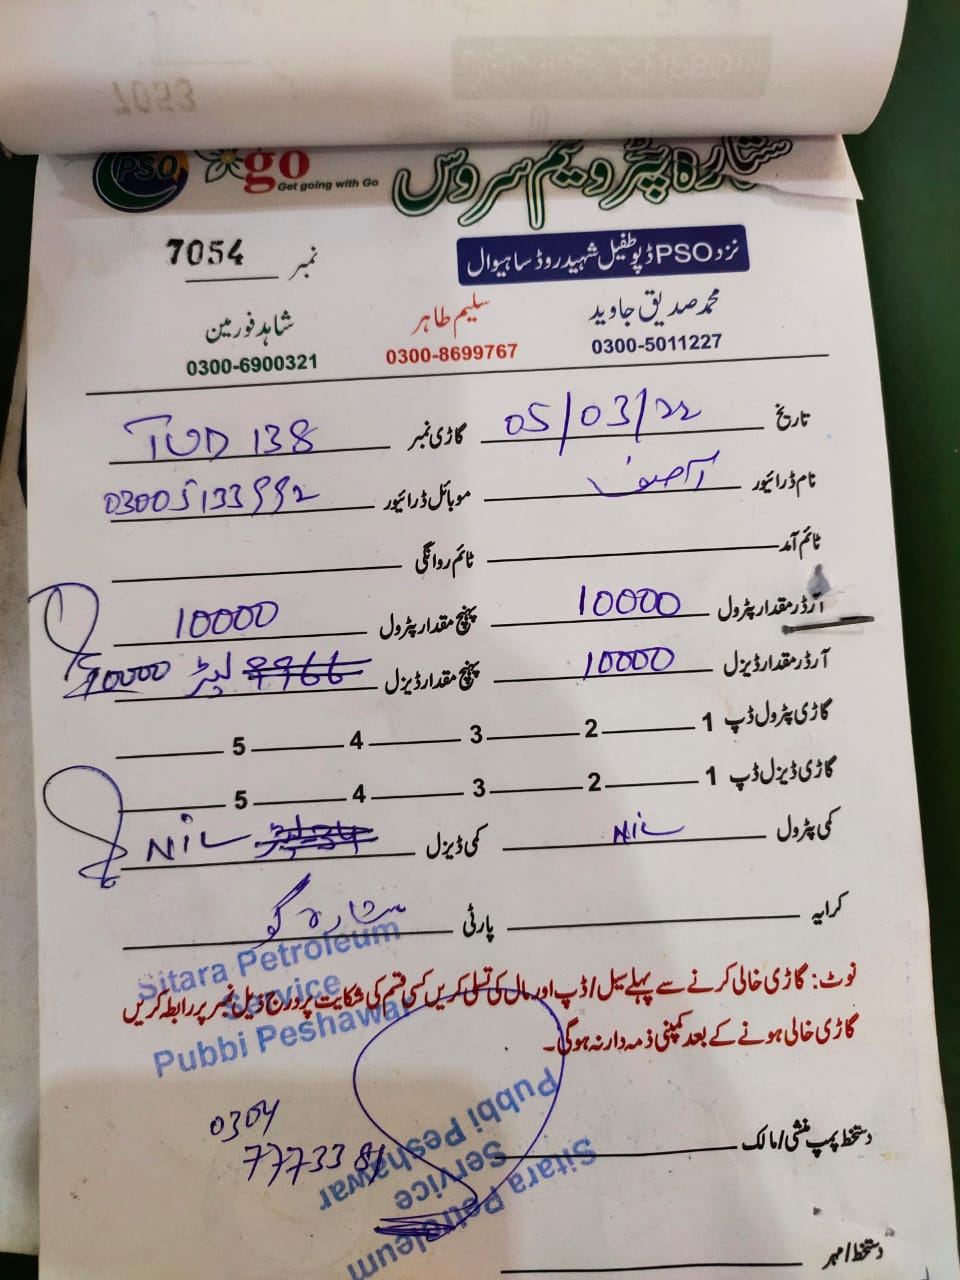 7053
PSO go ستارہ پٹرولیم سروس
Get going with Go
نزد PSO ڈپو طفیل شہید روڈ ساہیوال
نمبر 7054
محمد صدیق جاوید سلیم طاہر شاہد فورمین
0300-5011227 0300-8699767 0300-6900321
تاریخ 05/03/22 گاڑی نمبر TUD 138
نام ڈرائیور آصف موبائل ڈرائیور 03005133992
ٹائم آمد ٹائم روانگی
آرڈر مقدار پٹرول 10000 پہنچ مقدار پٹرول 10000
آرڈر مقدار ڈیزل 10000 پہنچ مقدار ڈیزل 9966 لیٹر 10000
گاڑی پٹرول ڈپ 1 2 3 4 5
گاڑی ڈیزل ڈپ 1 2 3 4 5
کمی پٹرول NiL کمی ڈیزل NiL
کرایہ پارٹی ستارہ گو
Sitara Petroleum
Service
Pubbi Peshawar
نوٹ: گاڑی خالی کرنے سے پہلے سیل/ڈپ اور مال کی تسلی کریں کسی قسم کی شکایت پر درج ذیل نمبر پر رابطہ کریں
گاڑی خالی ہونے کے بعد کمپنی ذمہ دار نہ ہوگی۔
0304
7773381
دستخط پمپ منشی/مالک
Sitara Petroleum
Service
Pubbi Peshawar
دستخط/مہر